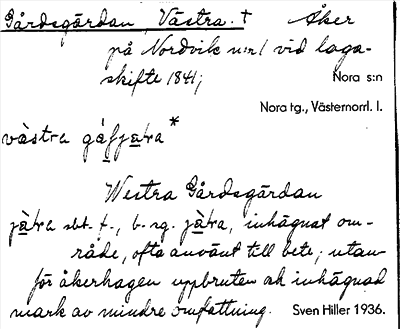 Gårdsgärdan, Västra. † Åker
på Nordvik n:r 1 vid laga-
skifte 1841;
Nora s:n
Nora tg., Västernorrl. l.
västra gá̱fja̱ra*
Westra Gårdsgärdan
jä̱ra sbt. f., b. sg. jä̱ra, inhägnat om-
råde, ofta använt till bete; utan-
för åkerhagen uppbruten och inhägnad
mark av mindre omfattning.
Sven Hiller 1936.